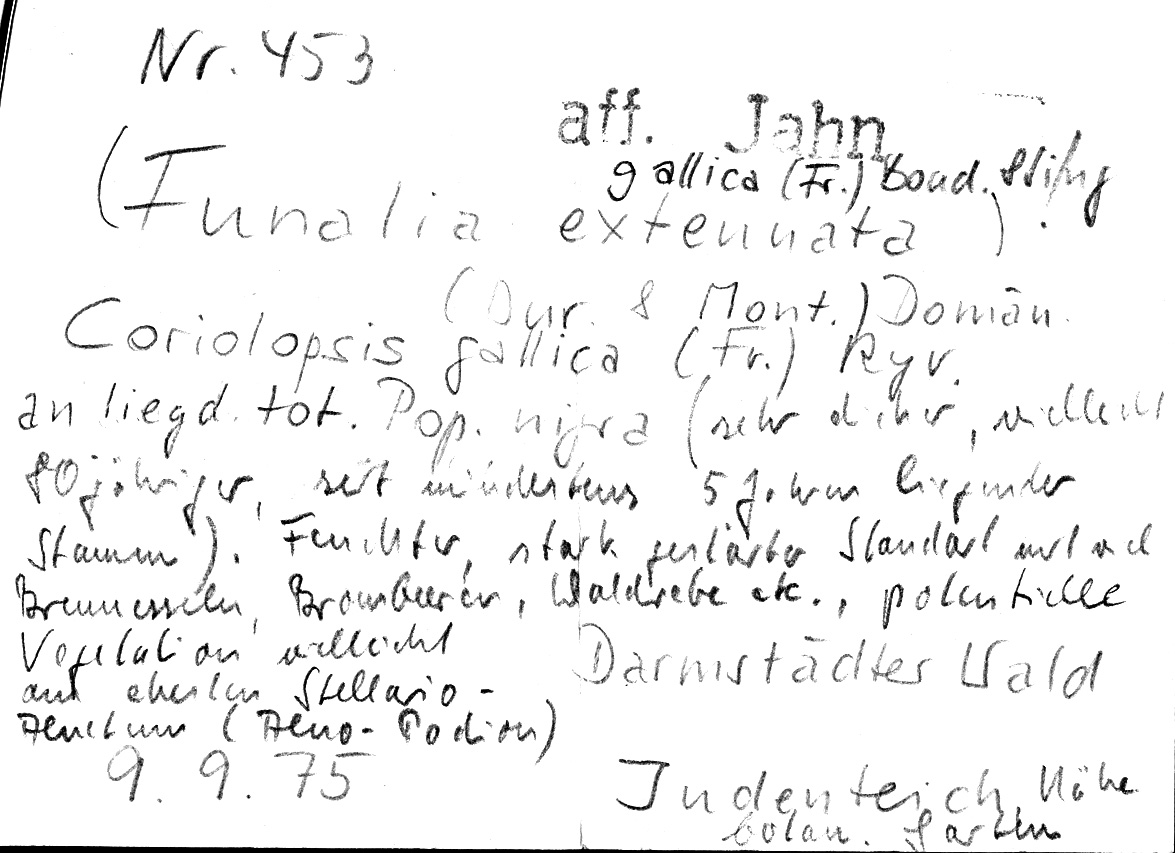 Nr. 453
aff. Jahn
gallica (Fr.) Bond. & Sing
(Funalia extenuata) !
(Dur. & Mont.) Domań.
Coriolopsis gallica (Fr.) Ryv.
an liegd. tot. Pop. nigra (sehr dicker, vielleicht
80jähriger, seit mindestens 5 Jahren liegender
Stamm). Feuchter, stark gestörter Standort mit viel
Brennesseln, Brombeeren, Waldrebe etc., potentielle
Vegetation vielleicht
am ehesten Stellario-
Alnetum (Alno-Padion)
Darmstädter Wald
9. 9. 75
Judenteich, Nähe
botan. Garten